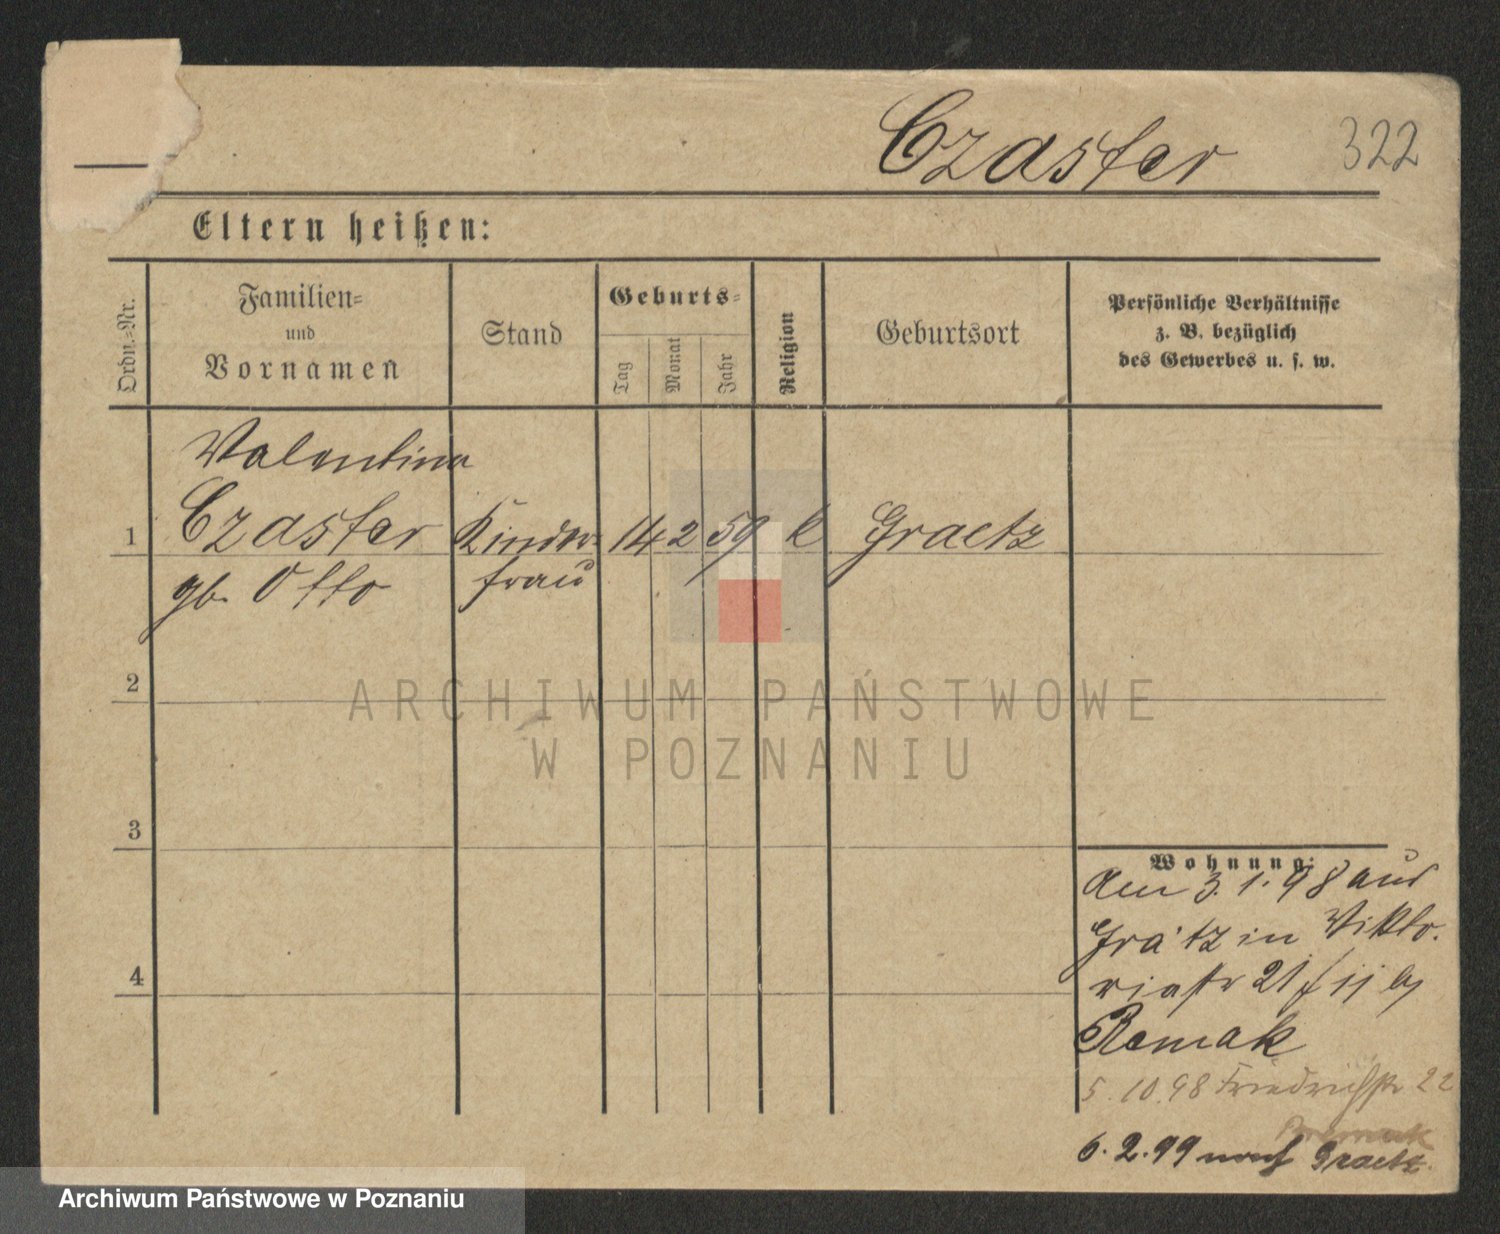 Czaster 322
Eltern heißen:
Ordn.-Nr.
Familien-
und
Vornamen
Stand
Geburts-
Tag
Monat
Jahr
Religion
Geburtsort
Persönliche Verhältnisse
z. B. bezüglich
des Gewerbes u. s. w.
Valentina
1 Czaster Kinder- 14 2 59 k Graetz
gb. Otto frau
2
ARCHIWUM PAŃSTWOWE
W POZNANIU
3
Wohnung:
Am 3.1.98 aus
Grätz in Vikto-
riastr 21 II by
4
Remak
5.10.98 Friedrichstr 22
6.2.99 nach Graetz.
Archiwum Państwowe w Poznaniu